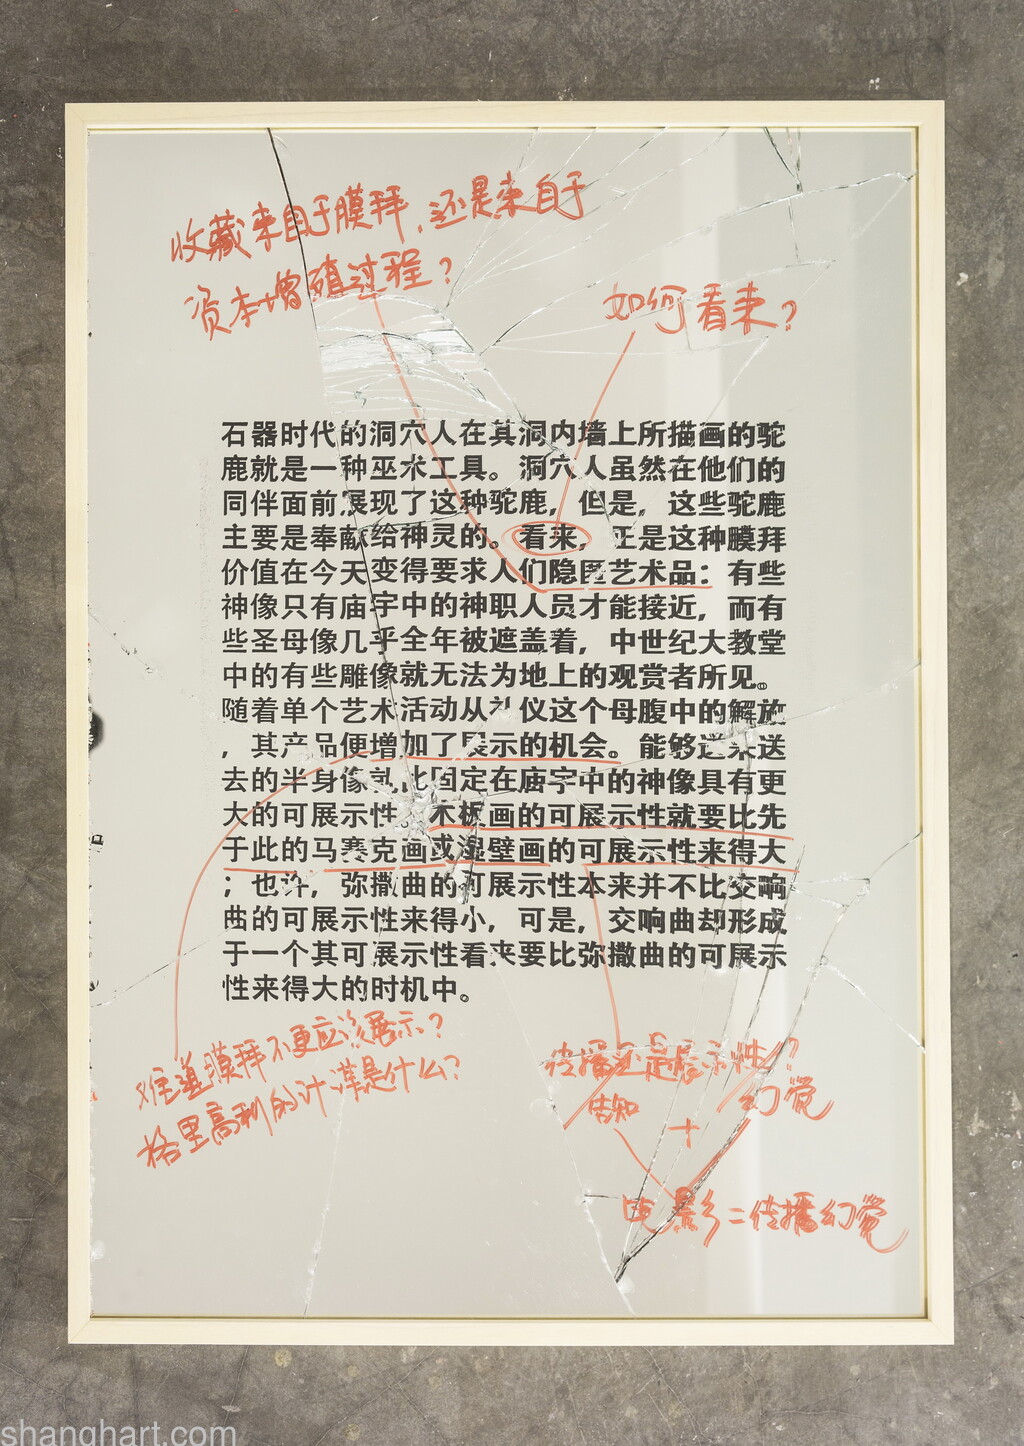 收藏来自于膜拜，还是来自于
资本增殖过程？
如何看来？
石器时代的洞穴人在其洞内墙上所描画的驼
鹿就是一种巫术工具。洞穴人虽然在他们的
同伴面前展现了这种驼鹿，但是，这些驼鹿
主要是奉献给神灵的。看来，正是这种膜拜
价值在今天变得要求人们隐匿艺术品：有些
神像只有庙宇中的神职人员才能接近，而有
些圣母像几乎全年被遮盖着，中世纪大教堂
中的有些雕像就无法为地上的观赏者所见。
随着单个艺术活动从礼仪这个母腹中的解放
，其产品便增加了展示的机会。能够送来送
去的半身像就比固定在庙宇中的神像具有更
大的可展示性。木板画的可展示性就要比先
于此的马赛克画或湿壁画的可展示性来得大
；也许，弥撒曲的可展示性本来并不比交响
曲的可展示性来得小，可是，交响曲却形成
于一个其可展示性看来要比弥撒曲的可展示
性来得大的时机中。
难道膜拜不更应该展示？
格里高利的计谋是什么？
传播还是展示性？
告知
幻觉
+
电影=传播幻觉
shanghart.com